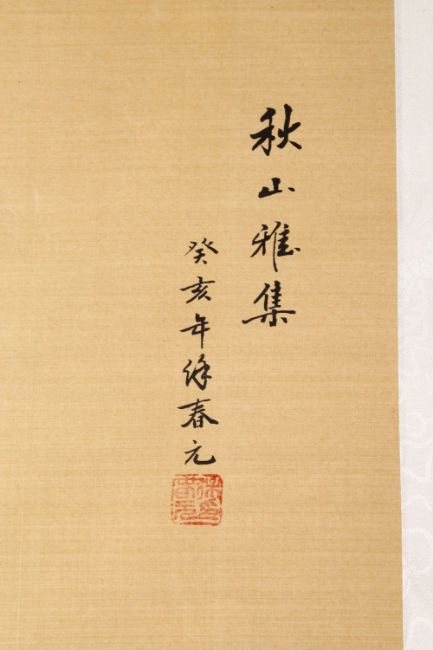 秋山雅集
癸亥年徐春元